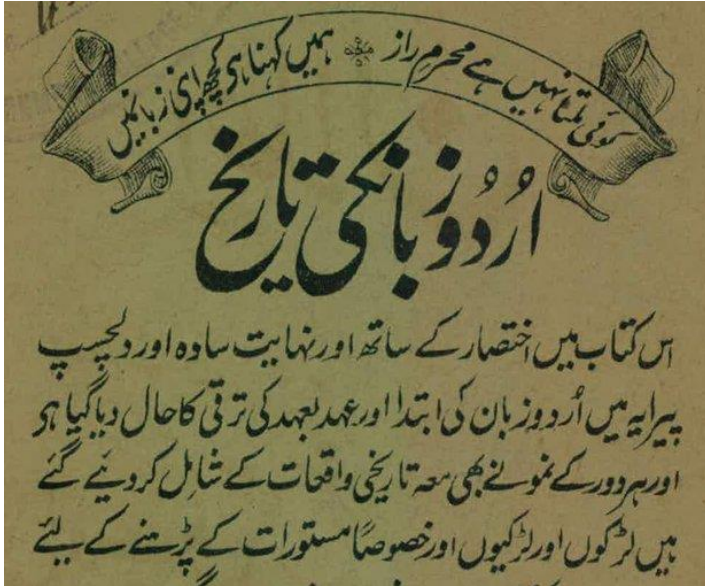 کوئی ملتا نہیں ہے محرم راز ہمیں کہنا ہی کچھ اپنی زبانمیں
اُردو زبانکی تاریخ
اس کتاب میں اختصار کے ساتھ اور نہایت سادہ اور دلچسپ
پیرایہ میں اُردو زبان کی ابتدا اور عہد بعہد کی ترقی کا حال دیا گیا ہی
اور ہر دور کے نمونے بھی معہ تاریخی واقعات کے شامل کر دئیے گئے
ہیں لڑکوں اور لڑکیوں اور خصوصاً مستورات کے پڑہنے کے لیئے